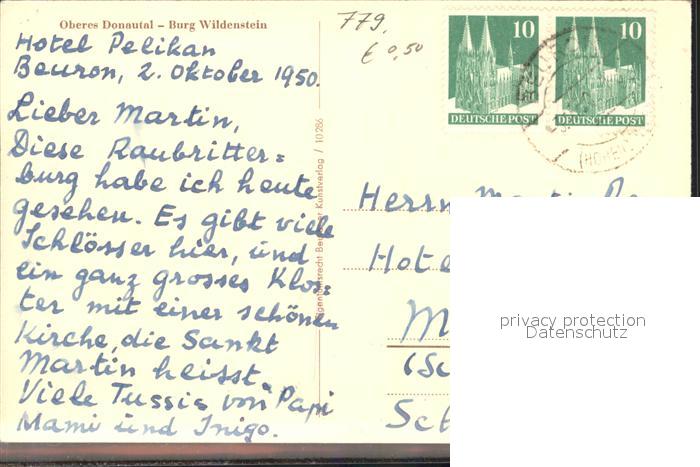 Oberes Donautal – Burg Wildenstein
779.
€ 0,50
Hotel Pelikan
Beuron, 2. Oktober 1950.
Lieber Martin,
Diese Raubritter=
burg habe ich heute
gesehen. Es gibt viele
Schlösser hier, und
ein ganz grosses Klos=
ter mit einer schönen
Kirche, die Sankt
Martin heisst.
Viele Tussis von Papi
Mami und Inigo.
10 10
DEUTSCHE POST DEUTSCHE POST
Kunstverlag / 10 286
Herrn
privacy protection
Datenschutz